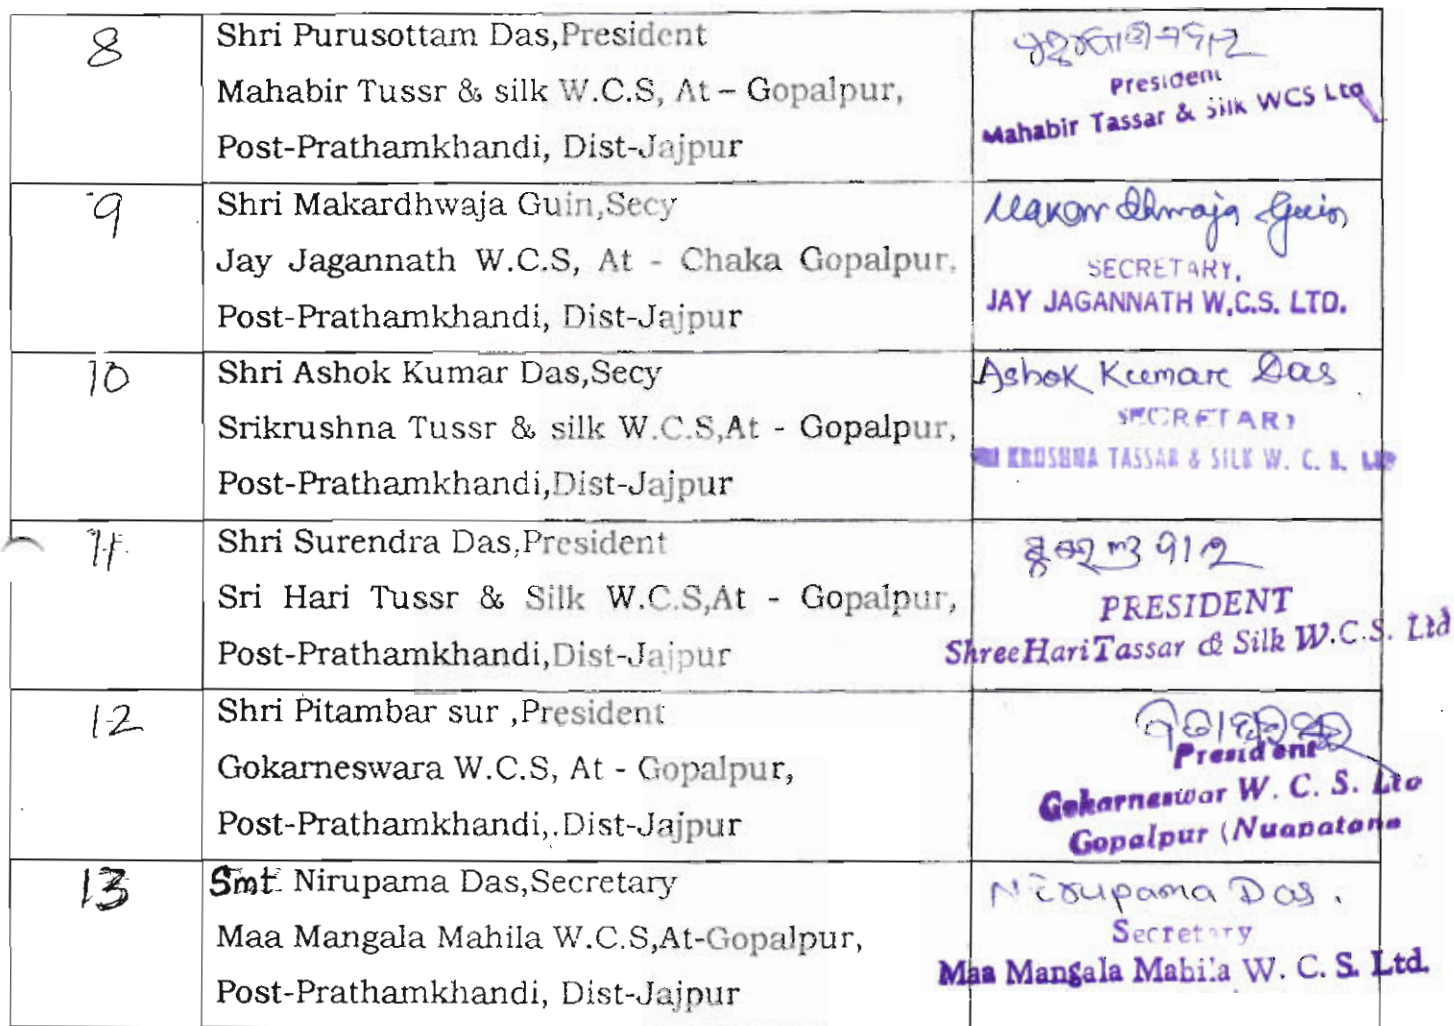 8
Shri Purusottam Das,President
Mahabir Tussr & silk W.C.S, At – Gopalpur,
Post-Prathamkhandi, Dist-Jajpur
President
Mahabir Tassar & Silk WCS Ltd
9
Shri Makardhwaja Guin,Secy
Jay Jagannath W.C.S, At - Chaka Gopalpur,
Post-Prathamkhandi, Dist-Jajpur
Makardhwaja Guin
SECRETARY,
JAY JAGANNATH W.C.S. LTD.
10
Shri Ashok Kumar Das,Secy
Srikrushna Tussr & silk W.C.S,At - Gopalpur,
Post-Prathamkhandi,Dist-Jajpur
Ashok Kumar Das
SECRETARY
KRUSHNA TASSAR & SILK W. C. S. LTD
11
Shri Surendra Das,President
Sri Hari Tussr & Silk W.C.S,At - Gopalpur,
Post-Prathamkhandi,Dist-Jajpur
PRESIDENT
Shree Hari Tassar & Silk W.C.S. Ltd
12
Shri Pitambar sur ,President
Gokarneswara W.C.S, At - Gopalpur,
Post-Prathamkhandi,.Dist-Jajpur
President
Gokarneswar W. C. S. Ltd
Gopalpur (Nuapatana
13
Smt. Nirupama Das,Secretary
Maa Mangala Mahila W.C.S,At-Gopalpur,
Post-Prathamkhandi, Dist-Jajpur
Nirupama Das.
Secretary
Maa Mangala Mahila W. C. S. Ltd.